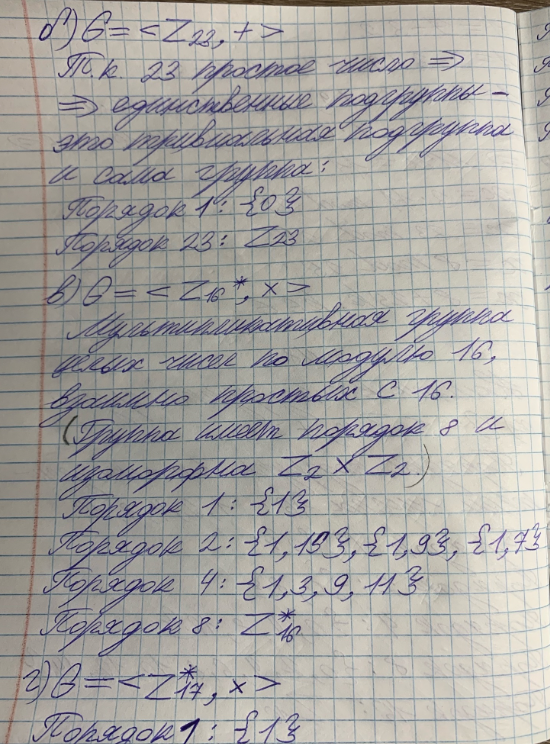 б) G = <Z₂₃, +>
Т.к. 23 простое число ⇒
⇒ единственные подгруппы –
это тривиальная подгруппа
и сама группа:
Порядок 1: {0}
Порядок 23: Z₂₃
в) G = <Z₁₆*, ×>
Мультипликативная группа
целых чисел по модулю 16,
взаимно простых с 16.
(Группа имеет порядок 8 и
изоморфна Z₂ × Z₂.)
Порядок 1: {1}
Порядок 2: {1, 15}, {1, 9}, {1, 7}
Порядок 4: {1, 3, 9, 11}
Порядок 8: Z₁₆*
г) G = <Z₁₇*, ×>
Порядок 1: {1}